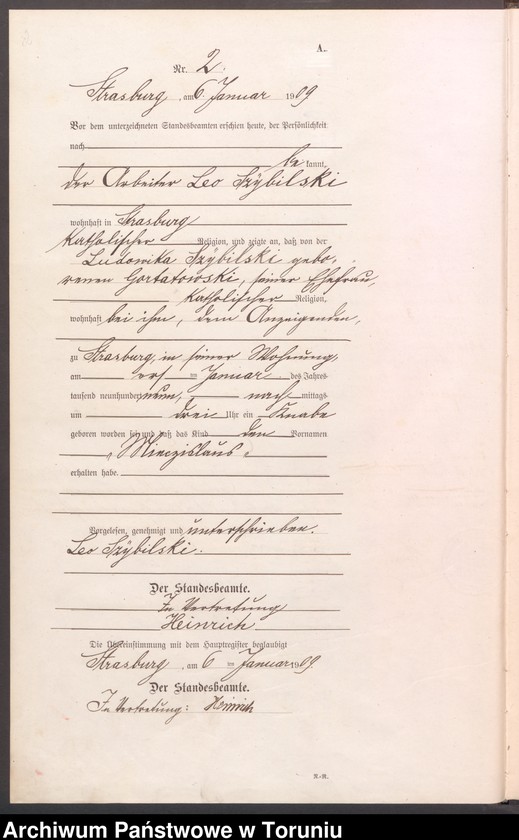 A.
Nr. 2.
Strasburg, am 6. Januar 1909
Vor dem unterzeichneten Standesbeamten erschien heute, der Persönlichkeit
nach
be kannt,
der Arbeiter Leo Szÿbilski
wohnhaft in Strasburg
katholischer Religion, und zeigte an, daß von der
Ludowika Szÿbilski gebo,
renen Gorbatowski, seiner Ehefrau,
katholischer Religion,
wohnhaft bei ihm, dem Anzeigenden,
zu Strasburg, in seiner Wohnung,
am Januar des Jahres
tausend neunhundert neun, nach mittags
um drei Uhr ein Knabe
geboren worden sei und daß das Kind den Vornamen
„Mieczislaus“
erhalten habe.
Vorgelesen, genehmigt und unterschrieben.
Leo Szÿbilski.
Der Standesbeamte.
In Vertretung
Heinrich
Die Übereinstimmung mit dem Hauptregister beglaubigt
Strasburg, am 6 ten Januar 1909.
Der Standesbeamte.
In Vertretung: Heinrich
R.-R.
Archiwum Państwowe w Toruniu